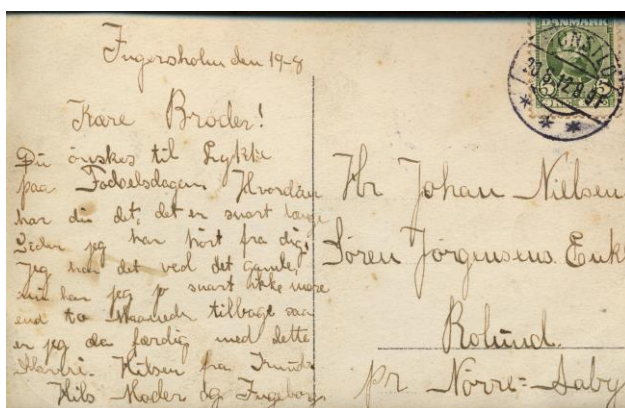 Ingersholm den 19-8
Kære Broder!
Du önskes til Lykke
paa Fødselsdagen. Hvordan
har du det, det er snart længe
Siden jeg har hört fra dig,
Jeg har det ved det gamle,
nu har jeg jo snart ikke mere
end to Maaneder tilbage saa
er jeg da færdig med dette
Hilsen fra
Hils Moder og Ingeborg
DANMARK
ÖNSLU
20.8.12.8-9F
5 5
Hr Johan Nielsen
Sören Jörgensens Enke
Rolund.
pr Nörre-Aaby